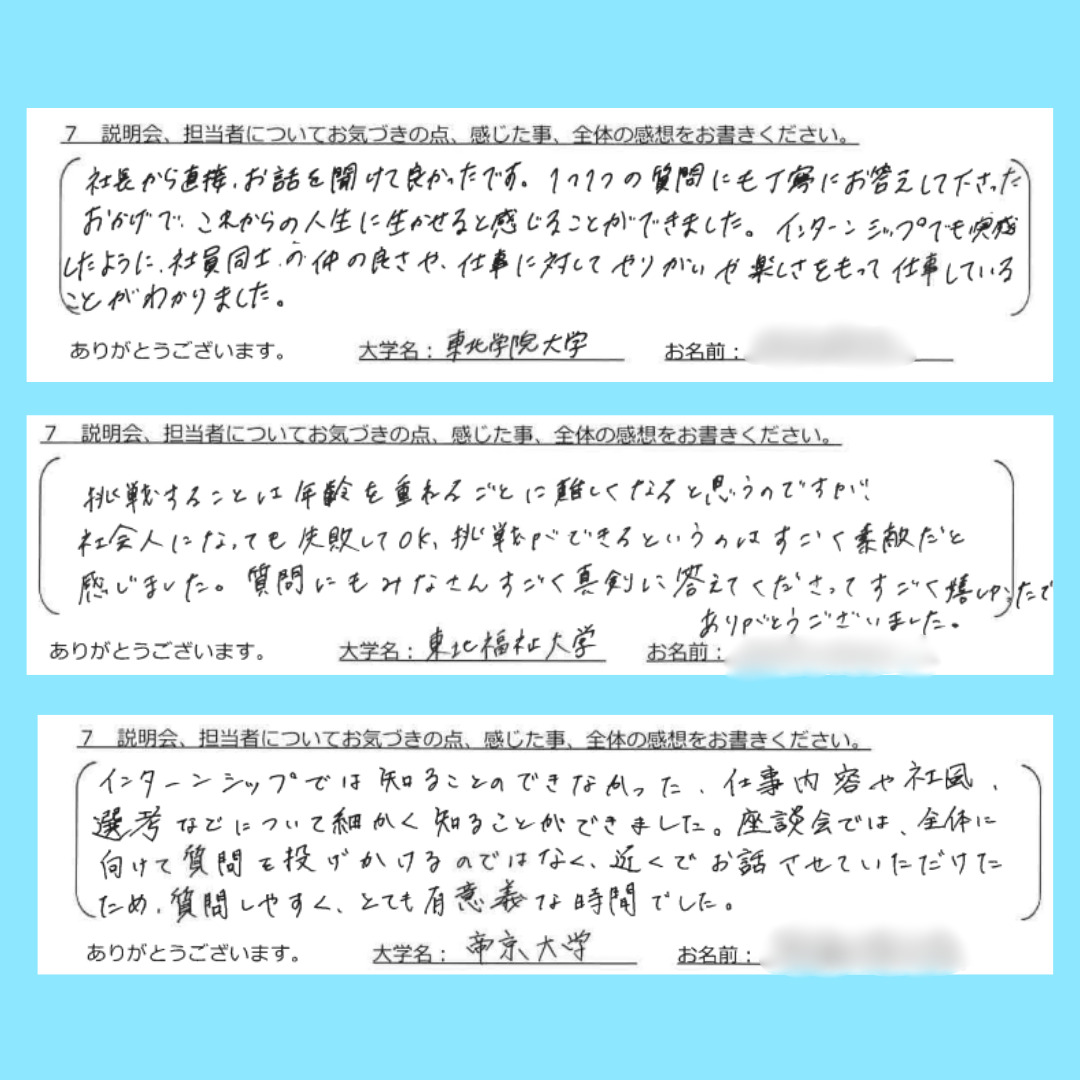 7 説明会、担当者についてお気づきの点、感じた事、全体の感想をお書きください。
社長から直接、お話を聞けて良かったです。1つ1つの質問にも丁寧にお答えして下さった
おかげで、これからの人生に生かせると感じることができました。インターンシップでも実感
したように、社員同士の仲の良さや、仕事に対してやりがいや楽しさをもって仕事している
ことがわかりました。
ありがとうございます。 大学名：東北学院大学 お名前：
7 説明会、担当者についてお気づきの点、感じた事、全体の感想をお書きください。
挑戦することは年齢を重ねるごとに難しくなると思うのですが、
社会人になっても失敗してOK、挑戦ができるというのはすごく素敵だと
感じました。質問にもみなさんすごく真剣に答えてくださってすごく嬉しかったで
ありがとうございました。
ありがとうございます。 大学名：東北福祉大学 お名前：
7 説明会、担当者についてお気づきの点、感じた事、全体の感想をお書きください。
インターンシップでは知ることのできなかった、仕事内容や社風、
選考などについて細かく知ることができました。座談会では、全体に
向けて質問を投げかけるのではなく、近くでお話させていただけた
ため、質問しやすく、とても有意義な時間でした。
ありがとうございます。 大学名：帝京大学 お名前：